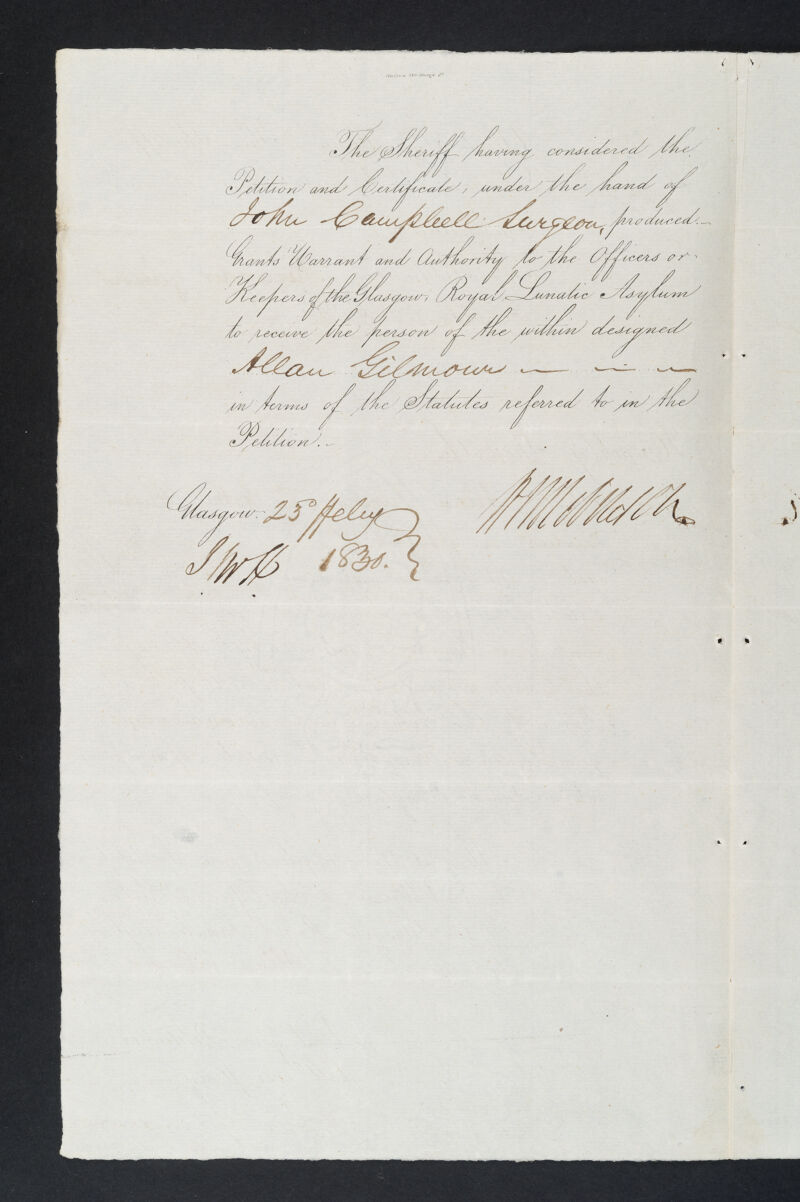 The Sheriff having considered the
Petition and Certificate, under the hand of
John Campbell Surgeon, produced.—
Grants Warrant and Authority to the Officers or
Keepers of the Glasgow Royal Lunatic Asylum
to receive the person of the within designed
Allan Gilmour — — —
in terms of the Statutes referred to in the
Petition.—
Glasgow. 25 Feby
1830.